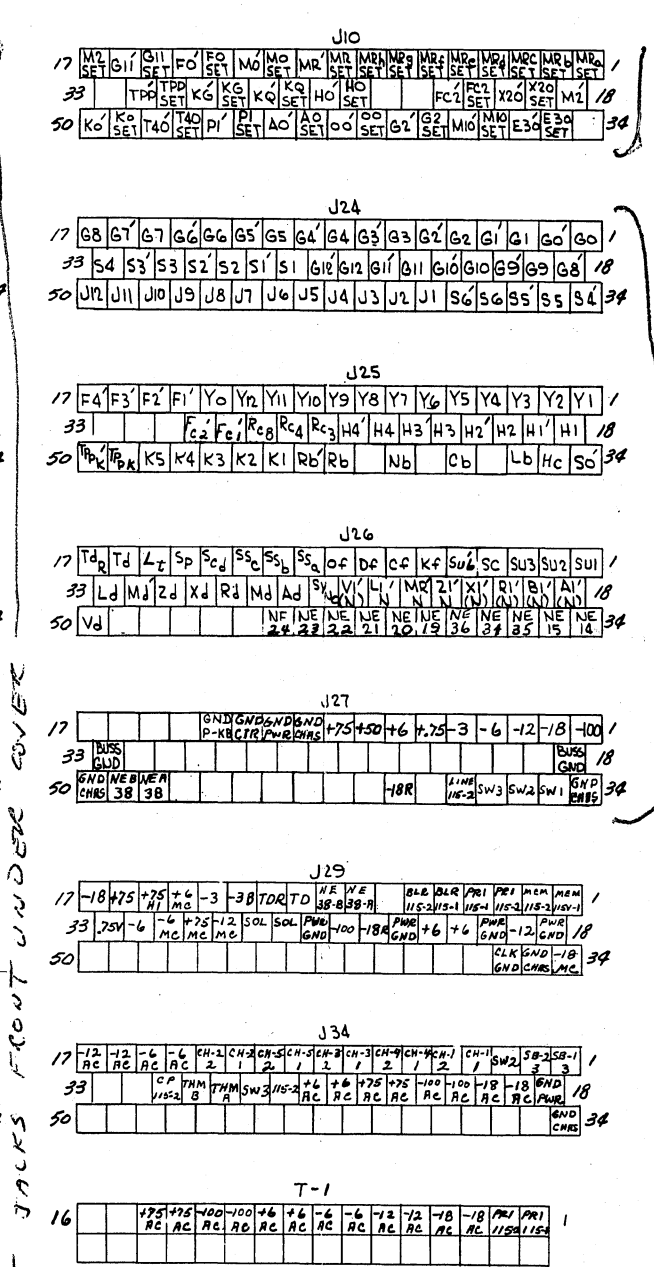 J10
17 M2 SET G11′ G11 SET FO′ FO SET MO′ MO SET MR′ MR SET MRh SET MRg SET MRf SET MRe SET MRd SET MRC SET MRb SET MRa SET 1
33 TPP′ TPP SET KG′ KG SET KQ′ KQ SET HO′ HO SET FC2′ FC2 SET X20′ X20 SET M2′ 18
50 KO′ KO SET T40′ T40 SET P1′ P1 SET AO′ AO SET OO′ OO SET G2′ G2 SET M10′ M10 SET E30′ E30 SET 34
J24
17 G8 G7′ G7 G6′ G6 G5′ G5 G4′ G4 G3′ G3 G2′ G2 G1′ G1 G0′ G0 1
33 S4 S3′ S3 S2′ S2 S1′ S1 G12′ G12 G11′ G11 G10′ G10 G9′ G9 G8′ 18
50 J12 J11 J10 J9 J8 J7 J6 J5 J4 J3 J2 J1 S6′ S6 S5′ S5 S4′ 34
J25
17 F4′ F3′ F2′ F1′ Y0 Y12 Y11 Y10 Y9 Y8 Y7 Y6 Y5 Y4 Y3 Y2 Y1 1
33 Fc2′ Fc1′ Rc8 Rc4 Rc3 H4′ H4 H3′ H3 H2′ H2 H1′ H1 18
50 TPPK′ TPPK K5 K4 K3 K2 K1 Rb′ Rb Nb Cb Lb Hc So′ 34
J26
17 TdR Td Lt Sp Scd SSc SSb SSa Of Df Cf Kf Sub′ SC SU3 SU2 SU1 1
33 Ld Md′ Zd Xd Rd Md Ad V1′ (N) L1′ N MR′ N Z1′ (N) X1′ (N) R1′ (N) B1′ (N) A1′ (N) 18
50 Vd NE 24 NE 23 NE 22 NE 21 NE 20 NE 19 NE 36 NE 34 NE 35 NE 15 NE 14 34
J27
17 GND P-KB GND CTR GND PWR GND CHAS +75 +50 +6 +.75 -3 -6 -12 -18 -100 1
33 BUSS GND BUSS GND 18
50 GND CHAS NEB 38 NEA 38 -18R LINE 115-2 SW3 SW2 SW1 GND CHAS 34
J29
17 -18 +75 +75 HI +6 MC -3 -3B TDR TD NE 38-B NE 38-A BLR 115-2 BLR 115-1 PRI 115-1 PRI 115-2 MEM 115-2 MEM 115V-1 1
33 .75V -6 -6 MC +75 MC -12 MC SOL SOL PWR GND -100 -18R PWR GND +6 +6 PWR GND -12 PWR GND 18
50 CLK GND GND CHAS -18 MC 34
J34
17 -12 AC -12 AC -6 AC -6 AC CH-2 2 CH-2 1 CH-5 2 CH-5 1 CH-3 2 CH-3 1 CH-4 2 CH-4 1 CH-1 2 CH-1 1 SW2 SB-2 3 SB-1 3 1
33 CP 115-2 THM B THM A SW3 115-2 +6 AC +6 AC +75 AC +75 AC -100 AC -100 AC -18 AC -18 AC GND PWR 18
50 GND CHAS 34
T-1
16 +75 AC +75 AC -100 AC -100 AC +6 AC +6 AC -6 AC -6 AC -12 AC -12 AC -18 AC -18 AC PRI PRI 1
JACKS FRONT UNDER COVER